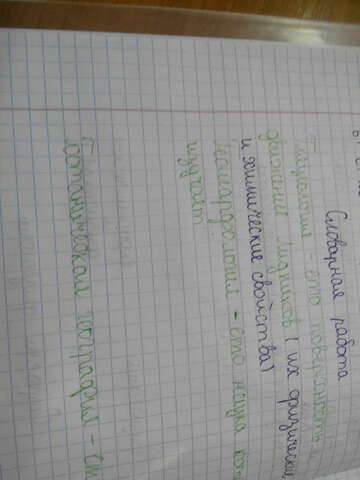 Словарная работа
Гляциология - ето поверхность
движение ледников ( их физические,
и химические свойства)
- ето наука ко
изучает
Ботаническая география - ет